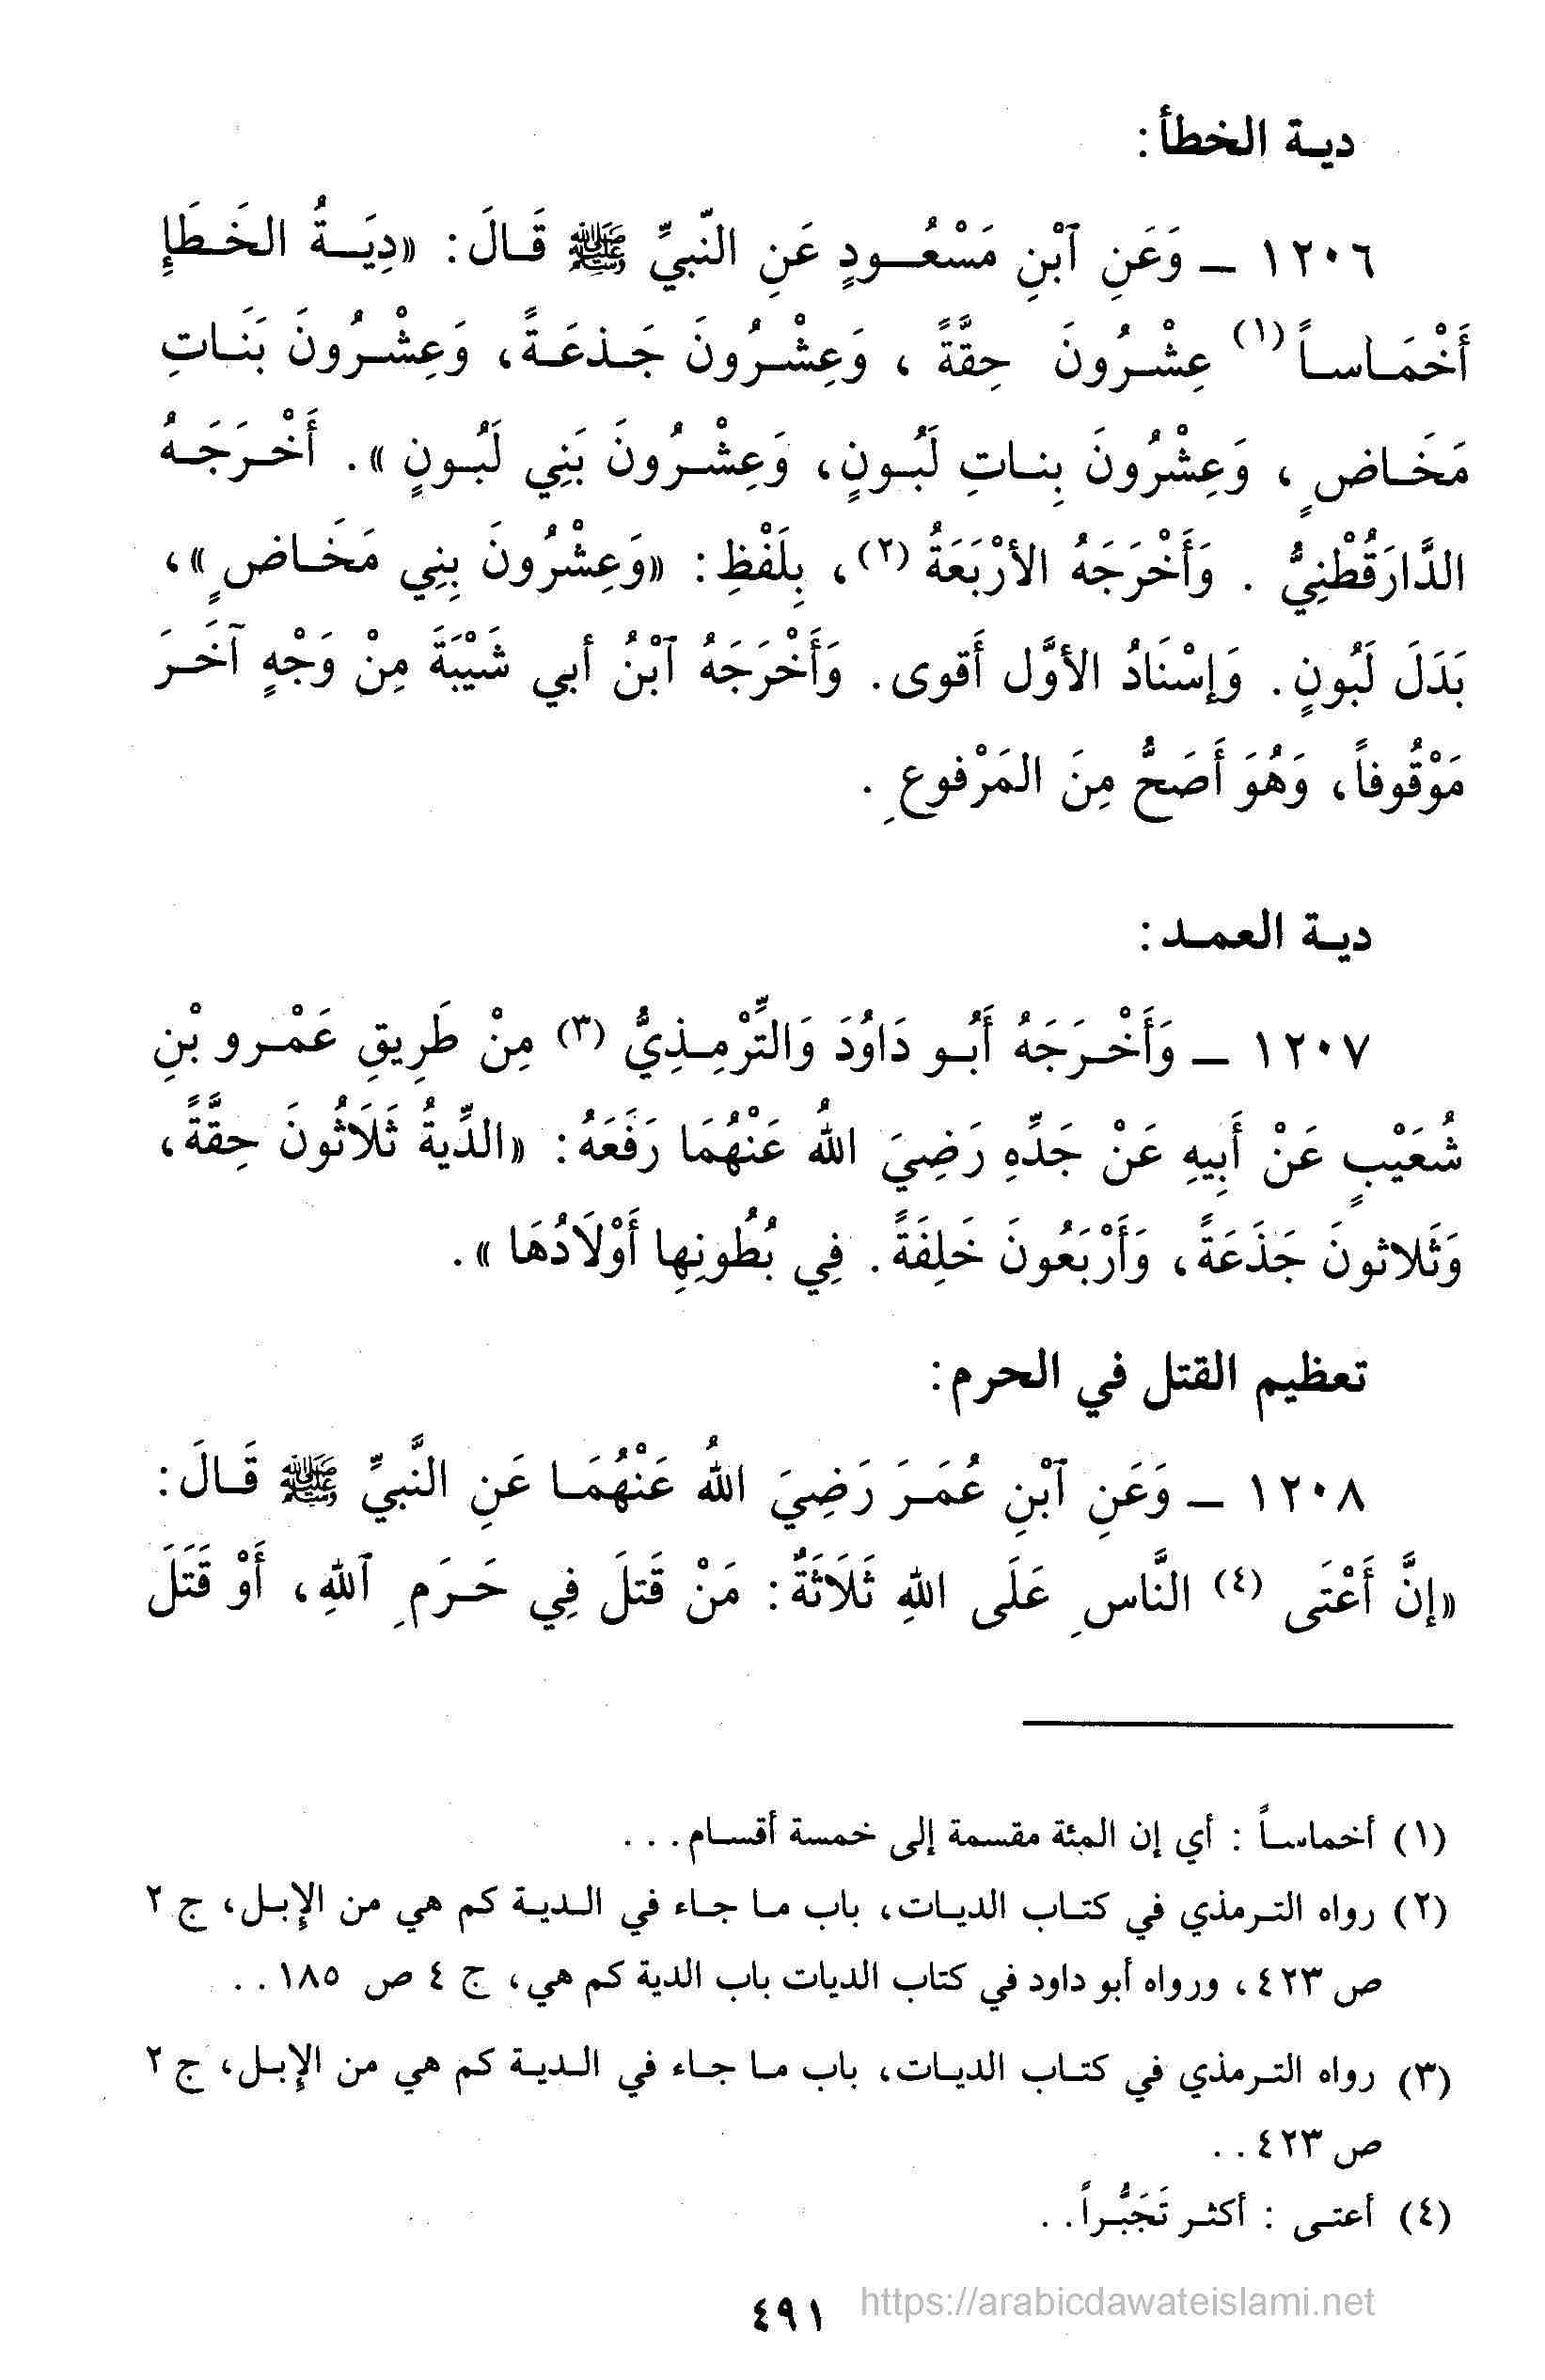 ديـة الخطأ:
١٢٠٦ ــ وَعَنِ ٱبْنِ مَسْعُـــودٍ عَنِ النّبيِّ ﷺ قَـالَ: «دِيَـــةُ الخَـطَإِ
أَخْمَـاسـاً (١) عِشْـرُونَ حِقَّةً ، وَعِشْـرُونَ جَـذعَـةً، وَعِشْـرُونَ بَنَـاتِ
مَخَـاضٍ ، وَعِشْرُونَ بِنـاتِ لَبُـونٍ، وَعِشْـرُونَ بَنِي لَبُـونٍ». أَخْـرَجَـهُ
الدَّارَقُطْنِيُّ . وَأَخْرَجَهُ الأرْبَعَةُ (٢)، بِلَفْظِ: «وَعِشْرُونَ بِنِي مَخَـاضٍ»،
بَدَلَ لَبُونٍ. وَإِسْنَادُ الأوَّل أَقوى. وَأَخْرَجَهُ ٱبْنُ أبي شَيْبَةَ مِنْ وَجْهٍ آخَـرَ
مَوْقُوفاً، وَهُوَ أَصَحُّ مِنَ المَرْفوعِ .
ديـة العمـد:
١٢٠٧ ــ وَأَخْـرَجَهُ أَبُـو دَاوُدَ وَالتِّرْمِـذِيُّ (٣) مِنْ طَرِيقِ عَمْـرو بْنِ
شُعَيْبٍ عَنْ أَبِيهِ عَنْ جَدِّهِ رَضِيَ اللهُ عَنْهُمَا رَفَعَهُ: «الدِّيةُ ثَلَاثُونَ حِقَّةً،
وَثَلاثونَ جَذَعَةً، وَأَرْبَعُونَ خَلِفَةً. فِي بُطُونِها أَوْلَادُهَا».
تعظيم القتل في الحرم:
١٢٠٨ ــ وَعَنِ ٱبْنِ عُمَـرَ رَضِيَ اللهُ عَنْهُمَـا عَنِ النَّبيِّ ﷺ قَـالَ:
«إنَّ أَعْتَى (٤) النَّاسِ عَلَى اللهِ ثَلَاثَةٌ: مَنْ قَتلَ فِي حَـرَمِ ٱللهِ، أَوْ قَتَلَ
(١) أخماسـاً : أي إن المِئة مقسمة إلى خمسة أقسـام...
(٢) رواه التـرمذي في كتـاب الديـات، باب مـا جـاء في الـديـة كم هي من الإِبـل، ج ٢
ص ٤٢٣، ورواه أبو داود في كتاب الديات باب الدية كم هي، ج ٤ ص ١٨٥..
(٣) رواه التـرمذي في كتـاب الديـات، باب مـا جـاء في الـديـة كم هي من الإِبـل، ج ٢
ص ٤٢٣..
(٤) أعتـى : أكثـر تَجَبُّـراً..
٤٩١
https://arabicdawateislami.net